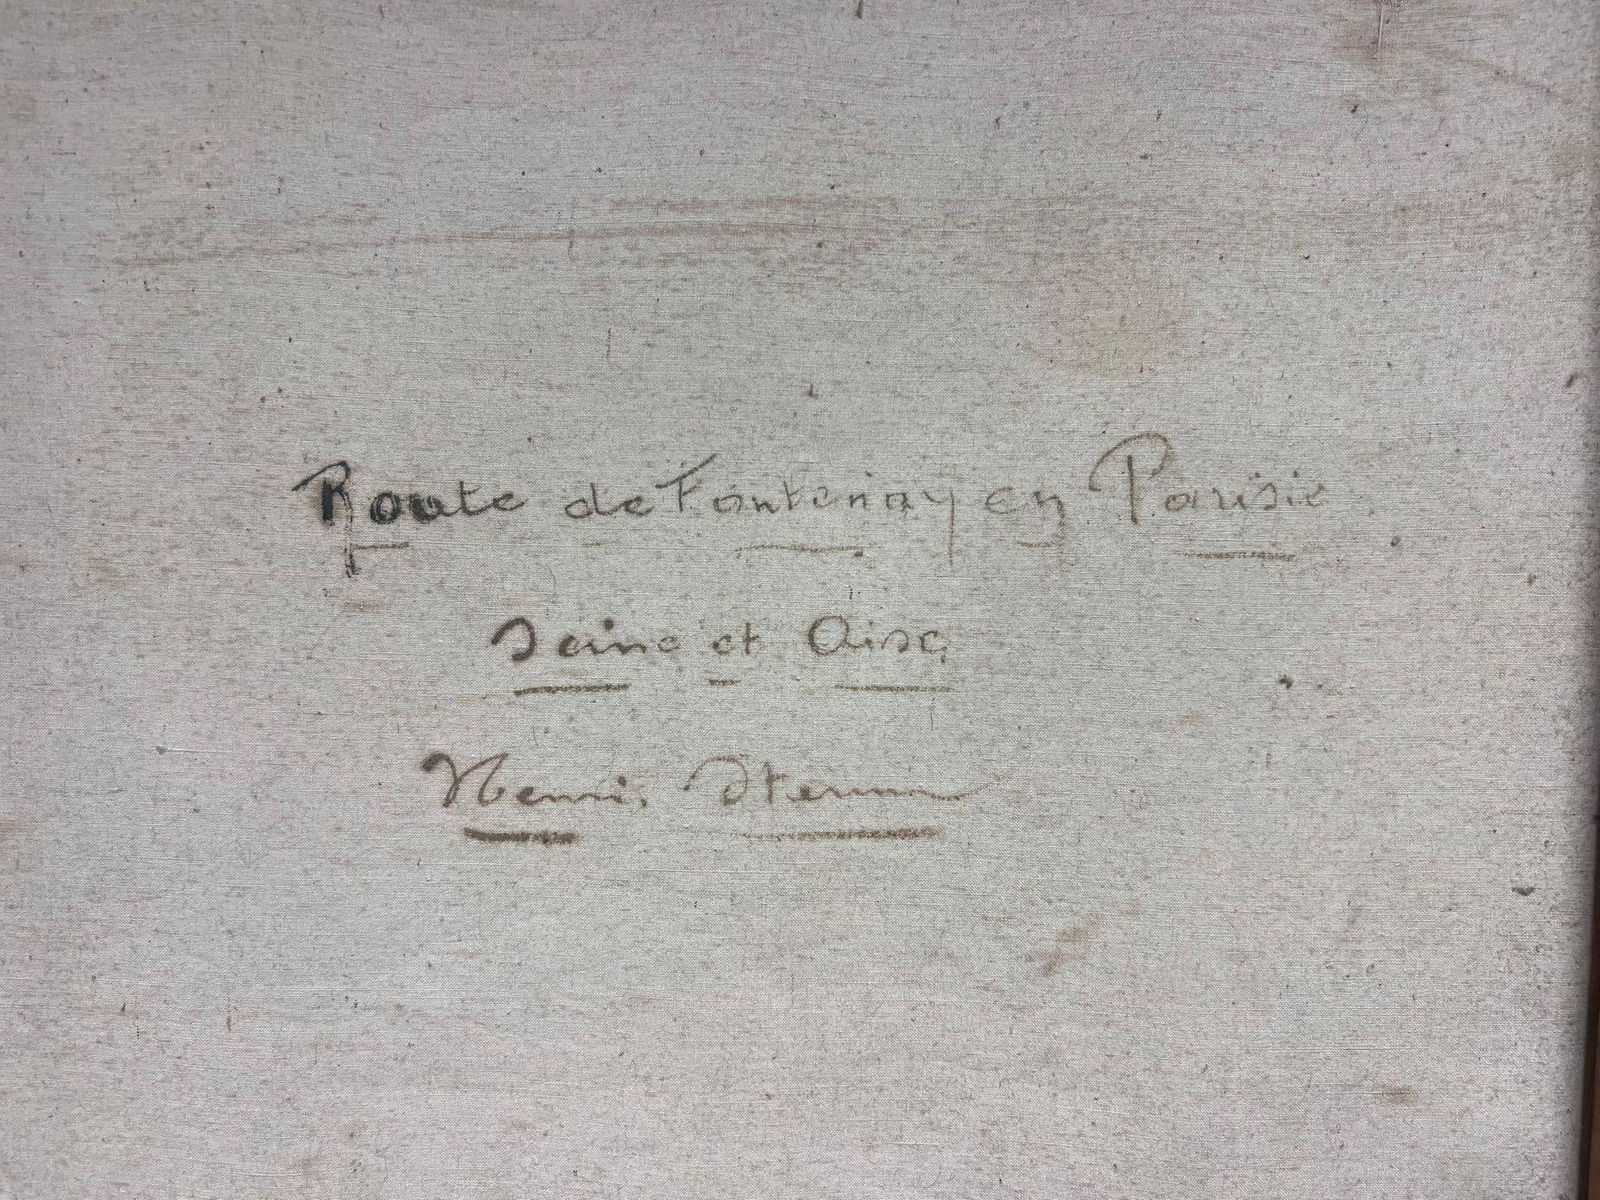 Route de Fontenay en Parisis
Seine et Oise
Henri